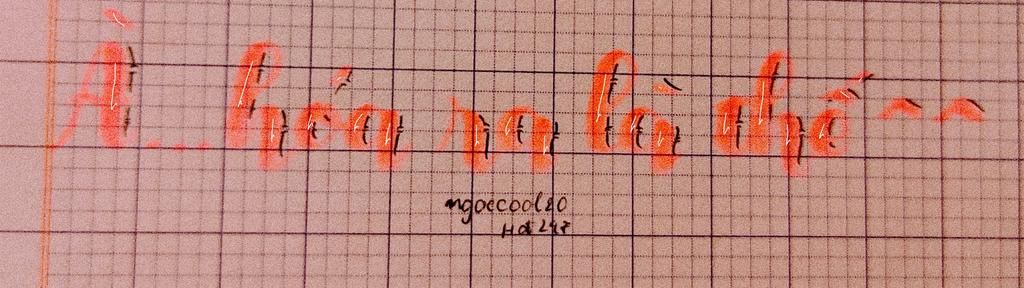 À... hóa ra là thế ^^
ngoccool20
Hd247